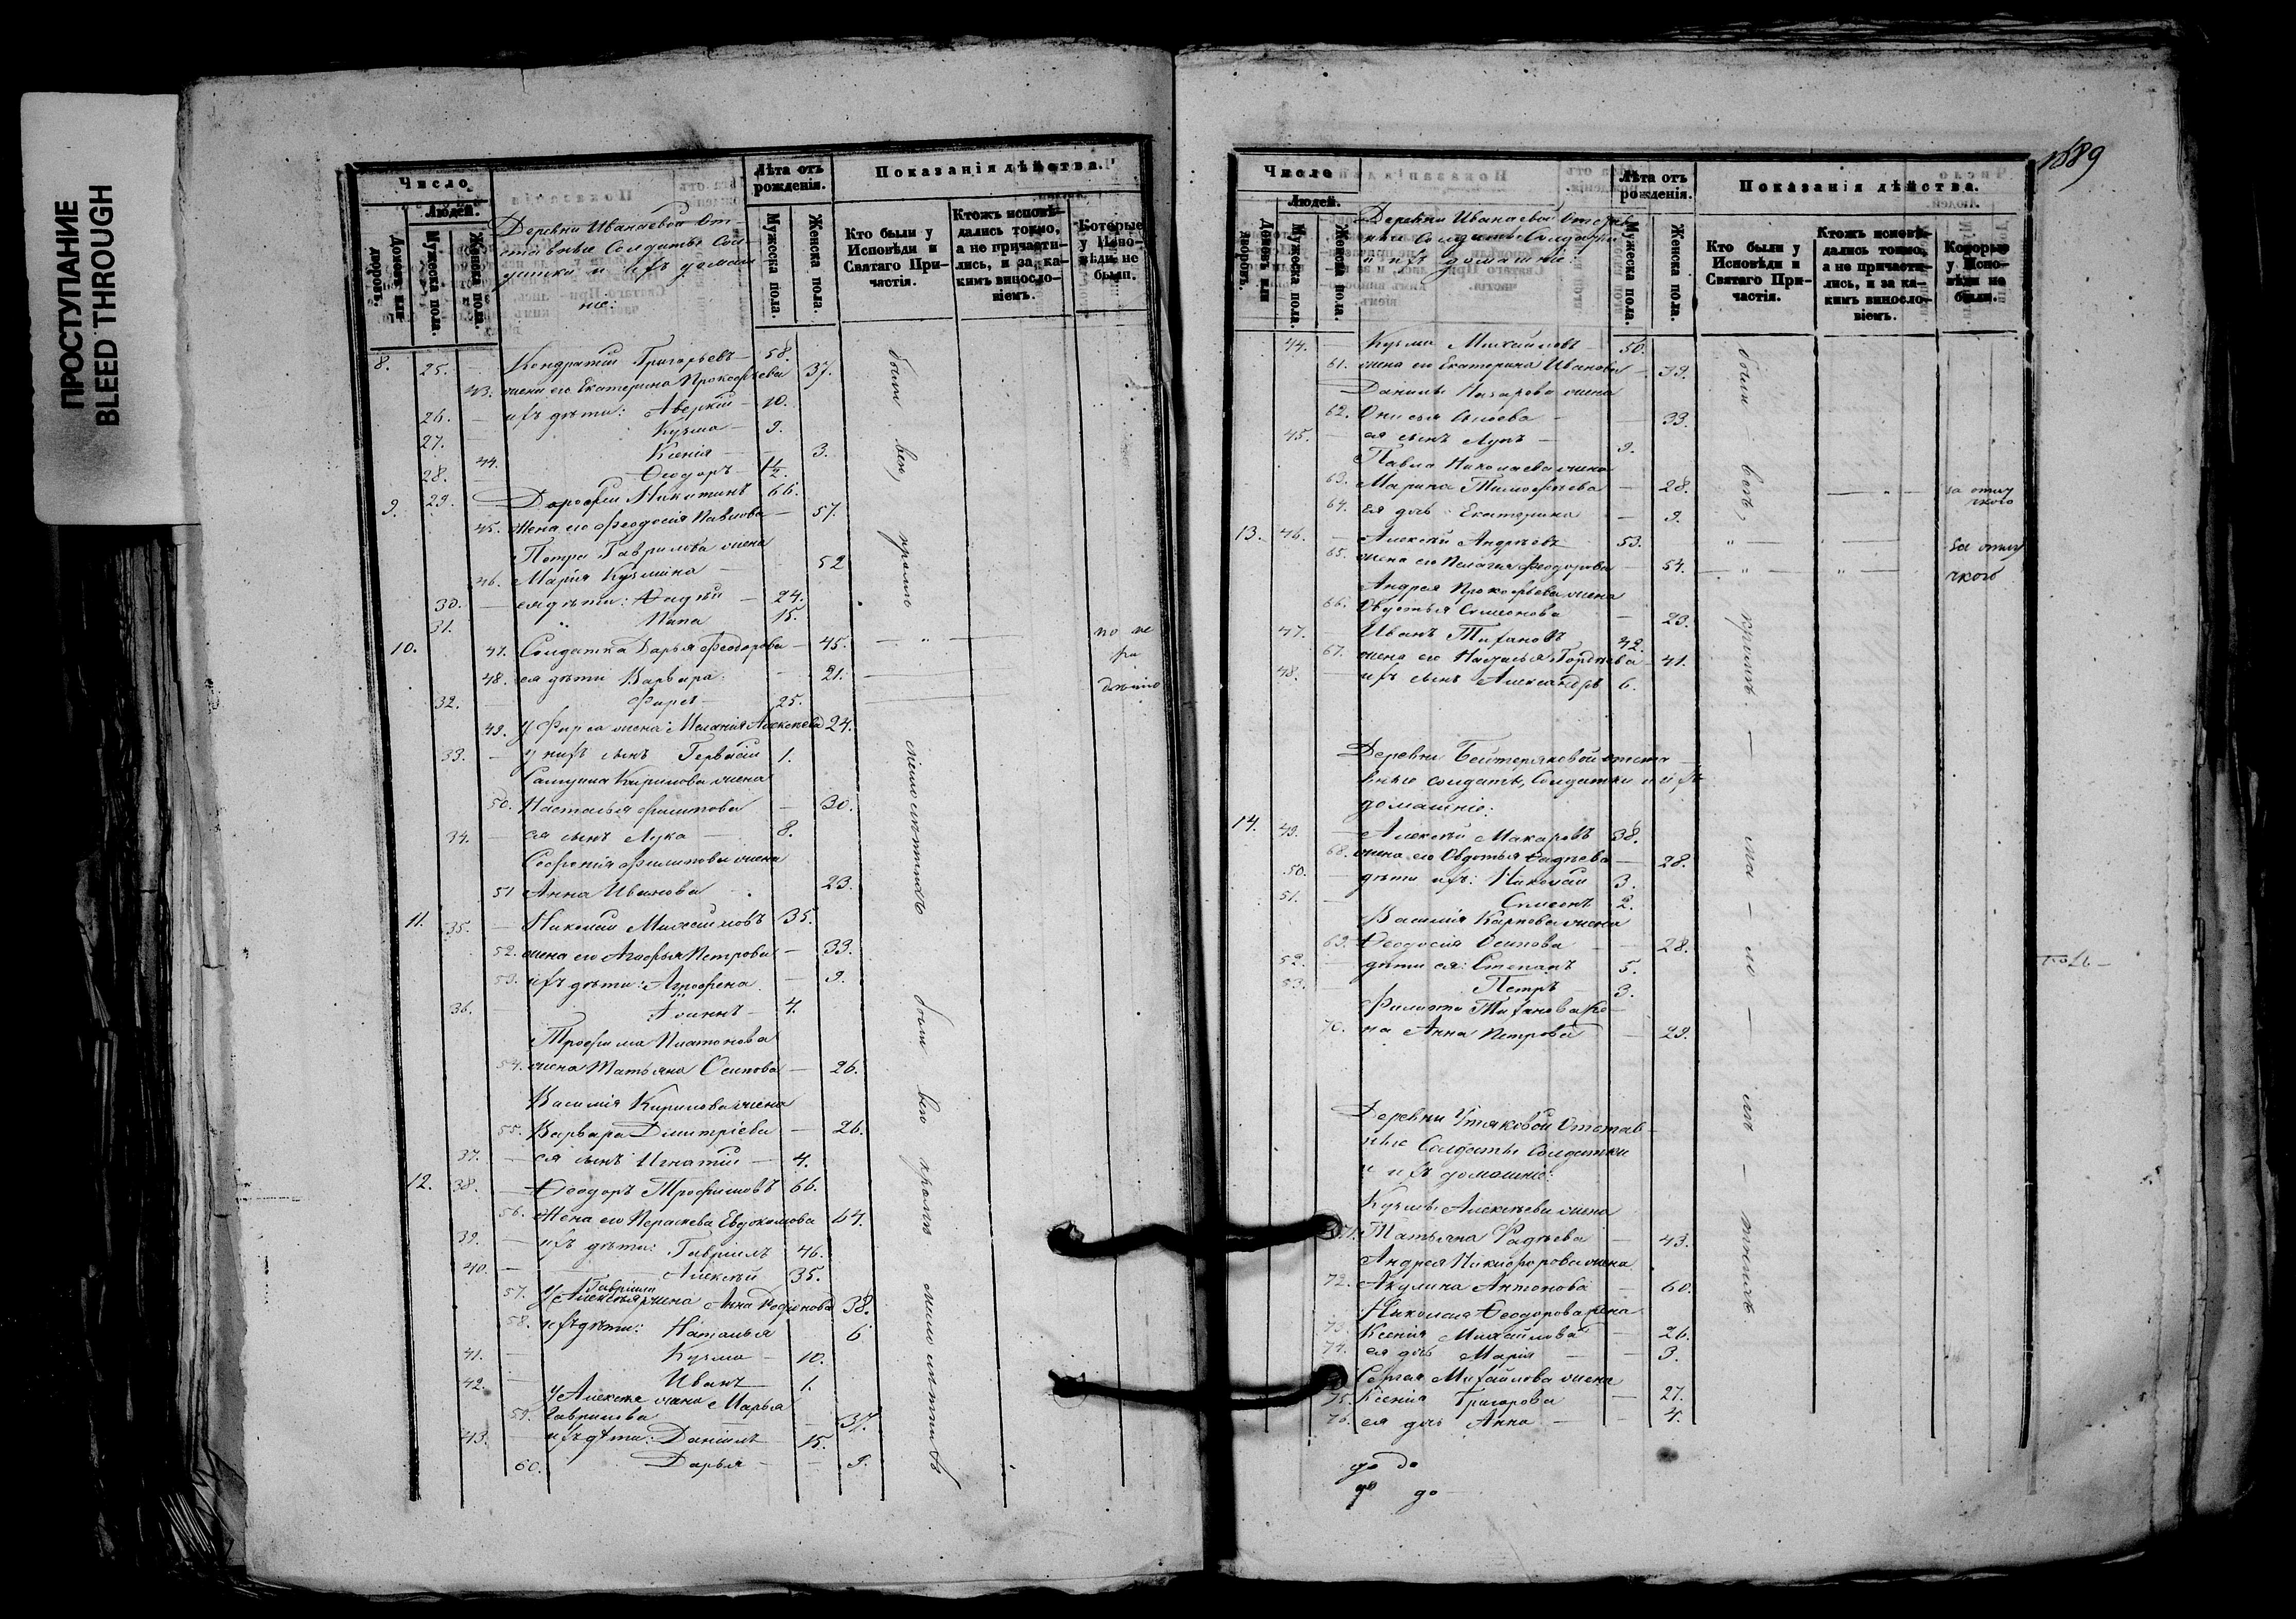 ПРОСТУПАНИЕ
BLEED THROUGH
Число
Людей.
Домовъ или дворовъ.
Мужеска пола.
Женска пола.
Деревни Иванаевой От-
ставные Солдаты Сол-
датки и ихъ домаш
ніе:
Лѣта отъ рожденія.
Мужеска пола.
Женска пола.
Показанія дѣйства.
Кто были у Исповѣди и Святаго Причастія.
Ктожъ исповѣдались токмо, а не причастились, и за какимъ винословіемъ.
Которые у Исповѣди не были.
8. 25. — Кондратій Григорьевъ — 58.
43. жена его Екатерина Прокофьева 37.
26. — ихъ дѣти: Аверкій — 10.
27. — Кузма — 9.
44. Ксенія — 3.
28. — Ѳеодоръ — 1½
9. 29. — Дороѳей Никитинъ 66.
45. Жена его Феодосія Павлова — 57.
Петра Гаврилова жена
46. Марія Кузмина — 52
30. — ея дѣти: Фадѣй — 24.
31. " Папа 15.
10. 47. Солдатка Дарья Феодорова — 45. — " —
48. ея дѣти Варвара: — 21. —
32. — Фирсъ — 25.
49. у Фирса жена: Меланія Алексѣева 24.
33. — у нихъ сынъ Гервасій 1.
Самуила Кирилова жена
50. Наталья Филипова — 30.
34. — ея сынъ Лука — 8.
Софронія Филипова жена
51 Анна Иванова — 23.
11. 35. — Николай Михайловъ 35.
52. жена его Агафья Петрова — 33.
53. ихъ дѣти: Агрофена — 9.
36. — Іоаннъ — 4.
Трофима Платонова
54. жена Татьяна Осипова — 26.
Василія Кирилова жена
55. Варвара Димитріева — 26.
37. — ея сынъ Игнатій — 4.
12. 38. — Ѳеодоръ Трофимовъ 66.
56. Жена его Параскева Евдокимова 64.
39. — ихъ дѣти: Гавріилъ 46.
40. — Алексѣй 35.
Гавріила
57. у Алексѣя жена Анна Родіонова 38.
58. ихъ дѣти: Наталья 6
41. — Кузма — 10.
42. — Иванъ 1.
у Алексѣя жена Марья
59. Гаврилова — 37.
43. — ихъ дѣти: Даніилъ — 15.
60. Дарья — — 9.
были всѣ, кромѣ малолѣтнихъ были всѣ кромѣ малолѣтнихъ
1689
Число
Людей.
Домовъ или дворовъ.
Мужеска пола.
Женска пола.
Деревни Иванаевой Отстав
ные Солдаты Солдатки
и ихъ домашніе:
Лѣта отъ рожденія.
Мужеска пола.
Женска пола.
Показанія дѣйства.
Кто были у Исповѣди и Святаго Причастія.
Ктожъ исповѣдались токмо, а не причастились, и за какимъ винословіемъ.
Которые у Исповѣди не были.
44. — Кузма Михайловъ — 50.
61. жена его Екатерина Иванова — 39.
Данилы Назарова жена
62. Онисья Сысоева — — 33.
45. — ея сынъ Лупъ — 9.
Павла Николаева жена
63. Марина Тимофѣева — 28. — " — за отлу
чкою
64. ея дочь Екатерина — 9.
13. 46. — Алексѣй Андреевъ 53. " — " — за отлу
65. жена его Пелагія Феодорова — 54. " — " — чкою
Андрея Прокофьева жена
66. Овдотья Семенова — 23.
47. — Иванъ Тихановъ 42.
67. жена его Наталья Гордѣева — 41.
48. — ихъ сынъ Александръ 6.
Деревни Бейтеряковой отста
вные солдаты, Солдатки и ихъ
домашніе:
14. 49. — Алексѣй Макаровъ 38.
68. жена его Овдотья Фадѣева — 28.
50. — дѣти ихъ: Николай 3.
51. — Симеонъ 2.
Василія Карпова жена
69. Ѳеодосія Осипова — 28.
52. — дѣти ея: Степанъ 5.
53. — Петръ — 3.
Филипа Тиханова же-
70. на Анна Петрова — 29.
Деревни Утяковой Отстав-
ные Солдаты Солдатки
и ихъ домашніе:
Кузмы Алексѣева жена
71. Татьяна Фадѣева — 43.
Андрея Никифорова жена
72. Акулина Антонова — 60.
Николая Ѳеодорова жена
73. Ксенія Михайлова — 26.
74. ея дочь Марія — — 3.
Сергея Михайлова жена
75. Ксенія Григорова — 27.
76. ея дочь Анна — — 4.
были — всѣ, — кромѣ — ма — ло — лѣ — тнихъ